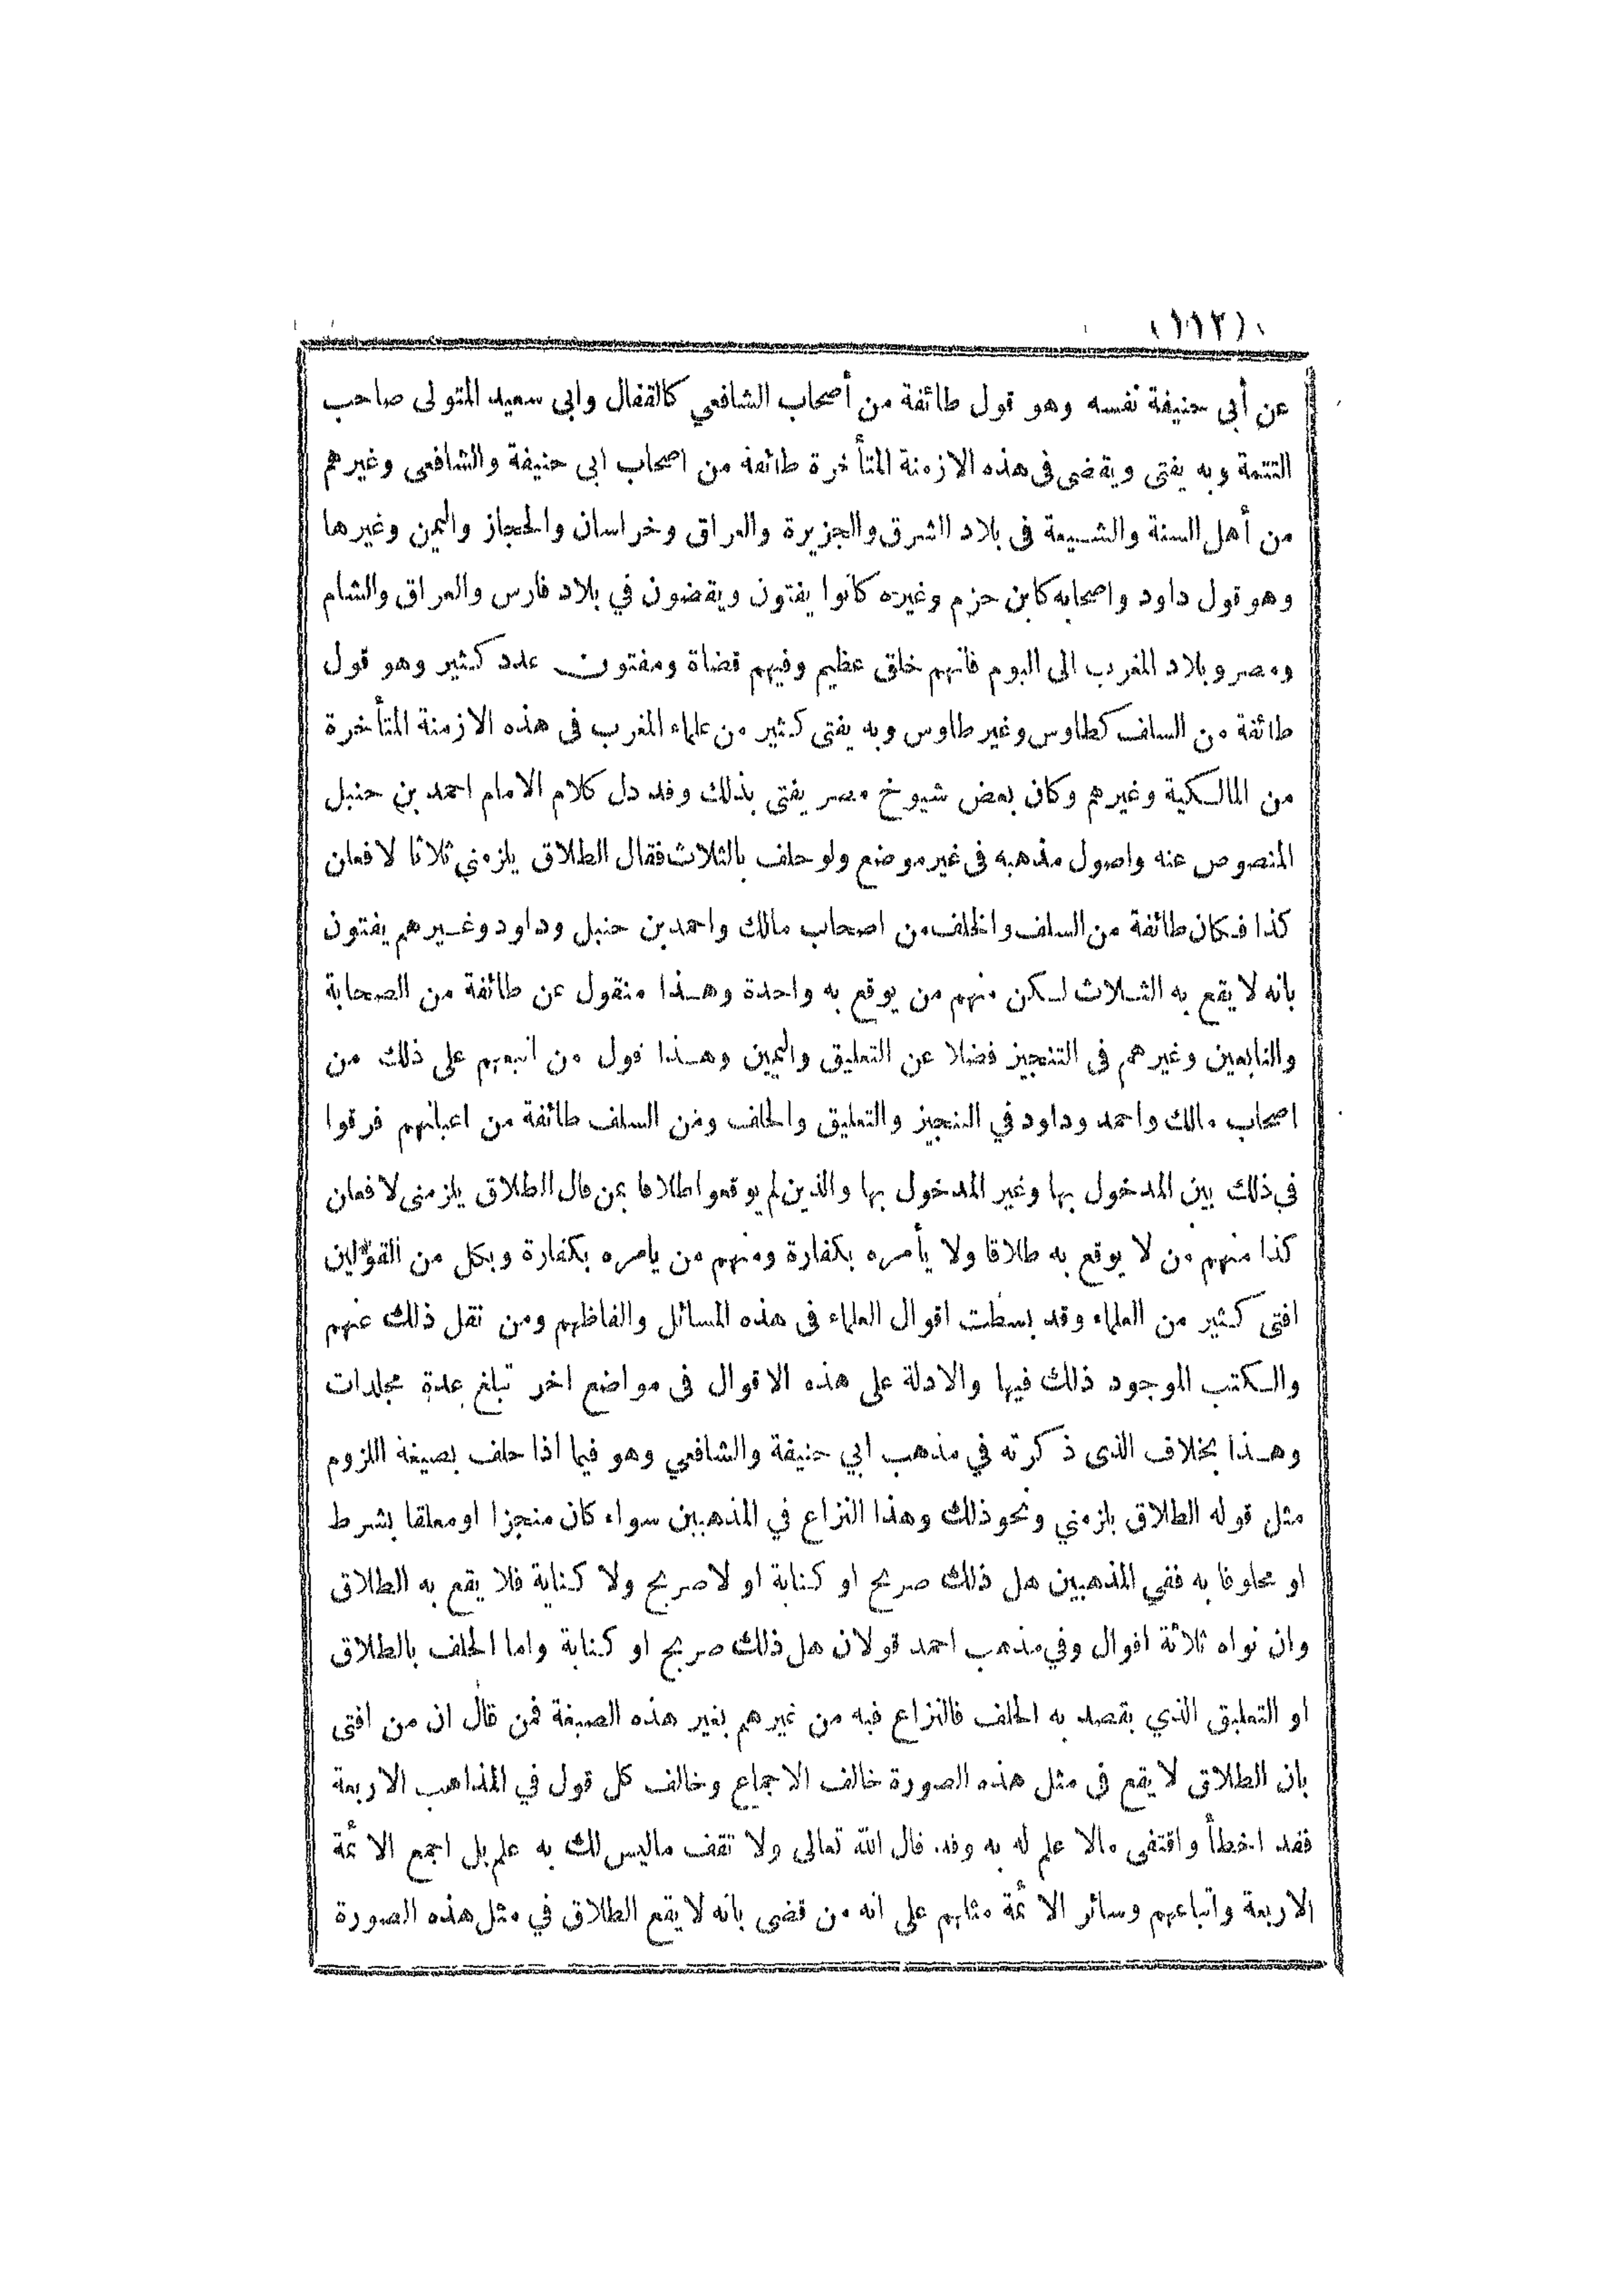 (١١٢)
عن أبى حنيفة نفسه وهو قول طائفة من أصحاب الشافعي كالقفال وابى سعيد المتولى صاحب
التتمة وبه يفتى ويقضى فى هذه الازمنة المتأخرة طائفة من اصحاب ابى حنيفة والشافعى وغيرهم
من أهل السنة والشيعة فى بلاد الشرق والجزيرة والعراق وخراسان والحجاز واليمن وغيرها
وهو قول داود واصحابه كابن حزم وغيره كانوا يفتون ويقضون في بلاد فارس والعراق والشام
ومصر وبلاد المغرب الى اليوم فانهم خلق عظيم وفيهم قضاة ومفتون عدد كثير وهو قول
طائفة من السلف كطاوس وغير طاوس وبه يفتى كثير من علماء المغرب فى هذه الازمنة المتأخرة
من المالكية وغيرهم وكان بعض شيوخ مصر يفتى بذلك وقد دل كلام الامام احمد بن حنبل
المنصوص عنه واصول مذهبه فى غير موضع ولو حلف بالثلاث فقال الطلاق يلزمني ثلاثا لافعلن
كذا فكان طائفة من السلف والخلف من اصحاب مالك واحمد بن حنبل وداود وغيرهم يفتون
بانه لا يقع به الثلاث لكن منهم من يوقع به واحدة وهذا منقول عن طائفة من الصحابة
والتابعين وغيرهم فى التنجيز فضلا عن التعليق واليمين وهذا قول من اتبعهم على ذلك من
اصحاب مالك واحمد وداود في التنجيز والتعليق والحلف ومن السلف طائفة من اعيانهم فرقوا
فى ذلك بين المدخول بها وغير المدخول بها والذين لم يوقعوا طلاقا بمن قال الطلاق يلزمنى لافعلن
كذا منهم من لا يوقع به طلاقا ولا يأمره بكفارة ومنهم من يامره بكفارة وبكل من القولين
افتى كثير من العلماء وقد بسطت اقوال العلماء فى هذه المسائل والفاظهم ومن نقل ذلك عنهم
والكتب الموجود ذلك فيها والادلة على هذه الاقوال فى مواضع اخر تبلغ عدة مجلدات
وهذا بخلاف الذى ذكرته في مذهب ابي حنيفة والشافعي وهو فيما اذا حلف بصيغة اللزوم
مثل قوله الطلاق يلزمني ونحو ذلك وهذا النزاع في المذهبين سواء كان منجزا او معلقا بشرط
او محلوفا به ففي المذهبين هل ذلك صريح او كناية او لا صريح ولا كناية فلا يقع به الطلاق
وان نواه ثلاثة اقوال وفي مذهب احمد قولان هل ذلك صريح او كناية واما الحلف بالطلاق
او التعليق الذي يقصد به الحلف فالنزاع فيه من غيرهم بغير هذه الصيغة فمن قال ان من افتى
بان الطلاق لا يقع فى مثل هذه الصورة خالف الاجماع وخالف كل قول في المذاهب الاربعة
فقد اخطأ واقتفى مالا علم له به وقد قال الله تعالى ولا تقف ماليس لك به علم بل اجمع الائمة
الاربعة واتباعهم وسائر الائمة مثلهم على انه من قضى بانه لا يقع الطلاق في مثل هذه الصورة